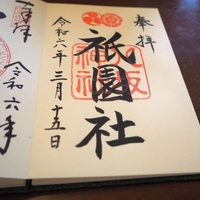 奉拝
祇園社
八坂
神社
令和六年三月十五日
令和六年